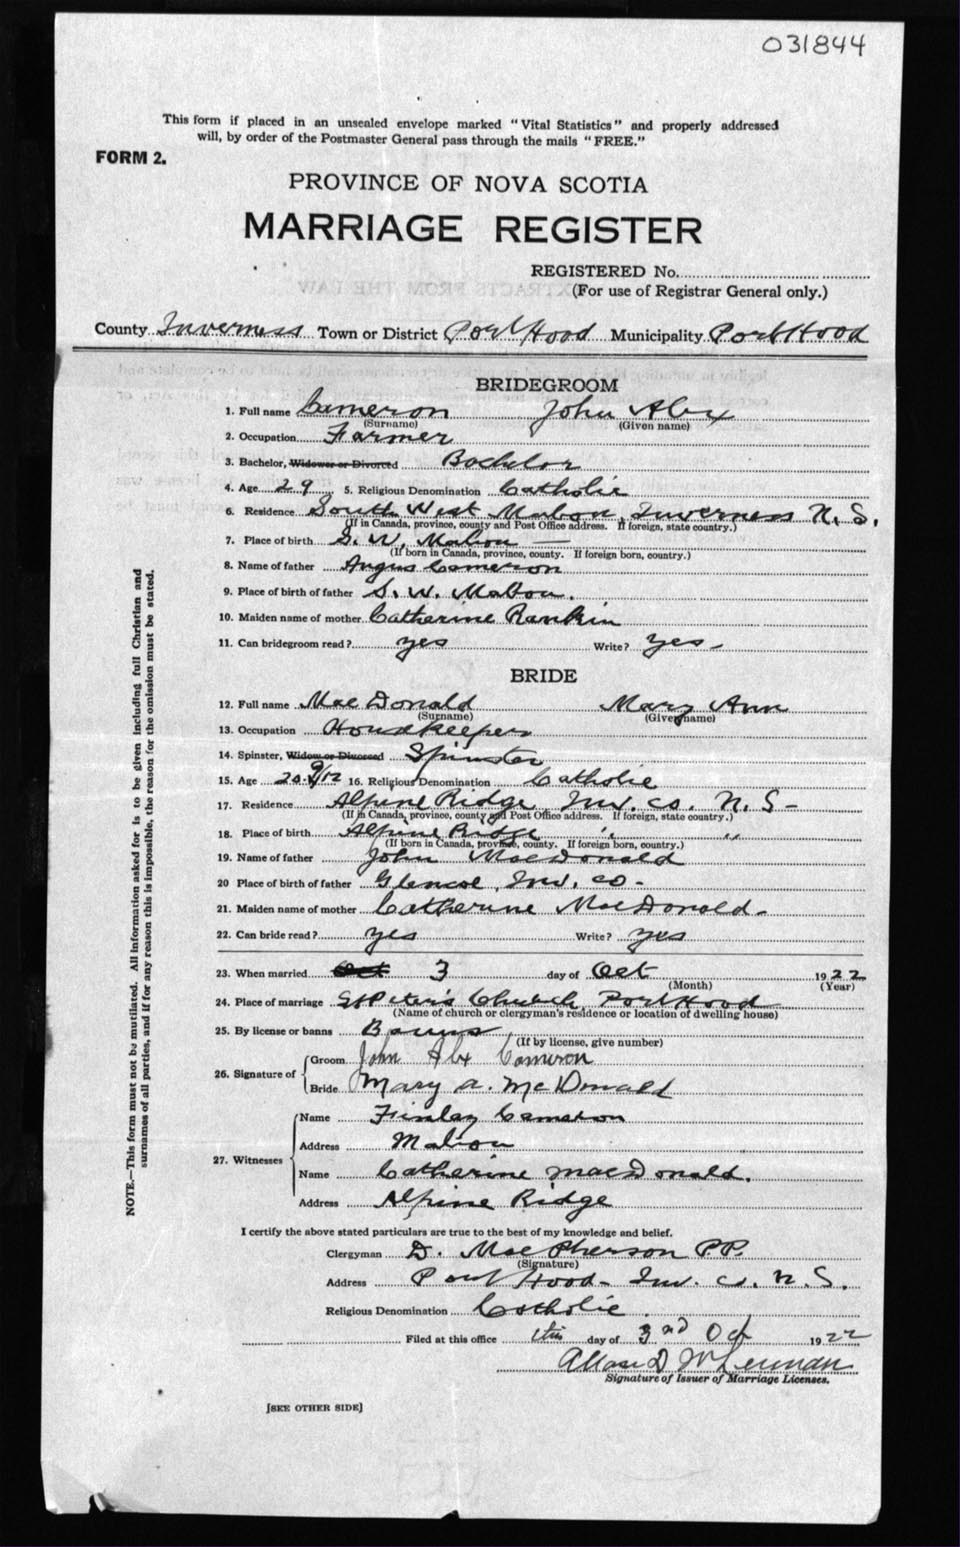 031844
This form if placed in an unsealed envelope marked "Vital Statistics" and properly addressed
will, by order of the Postmaster General pass through the mails "FREE."
FORM 2.
PROVINCE OF NOVA SCOTIA
MARRIAGE REGISTER
REGISTERED No.
(For use of Registrar General only.)
County Inverness Town or District Port Hood Municipality Port Hood
BRIDEGROOM
1. Full name Cameron John Alex
(Surname) (Given name)
2. Occupation Farmer
3. Bachelor, Widower or Divorced Bachelor
4. Age 29 5. Religious Denomination Catholic
6. Residence South West Mabou, Inverness N. S.
(If in Canada, province, county and Post Office address. If foreign, state country.)
7. Place of birth S. W. Mabou —
(If born in Canada, province, county. If foreign born, country.)
8. Name of father Angus Cameron
9. Place of birth of father S. W. Mabou.
10. Maiden name of mother Catherine Rankin
11. Can bridegroom read? yes Write? yes -
BRIDE
12. Full name MacDonald Mary Ann
(Surname) (Given name)
13. Occupation Housekeeper
14. Spinster, Widow or Divorced Spinster
15. Age 20 9/12 16. Religious Denomination Catholic
17. Residence Alpine Ridge, Inv. co. N. S -
(If in Canada, province, county and Post Office address. If foreign, state country.)
18. Place of birth Alpine Ridge " "
(If born in Canada, province, county. If foreign born, country.)
19. Name of father John MacDonald
20 Place of birth of father Glencoe, Inv. co -
21. Maiden name of mother Catherine MacDonald -
22. Can bride read? yes Write? yes
23. When married Oct 3 day of Oct 1922
(Month) (Year)
24. Place of marriage St Peter's Church, Port Hood
(Name of church or clergyman's residence or location of dwelling house)
25. By license or banns Banns
(If by license, give number)
26. Signature of Groom John Alex Cameron
Bride Mary A. McDonald
27. Witnesses Name Finlay Cameron
Address Mabou
Name Catherine MacDonald.
Address Alpine Ridge
I certify the above stated particulars are true to the best of my knowledge and belief.
Clergyman D. MacPherson P.P.
(Signature)
Address Port Hood - Inv. co. N. S.
Religious Denomination Catholic.
Filed at this office this day of 3rd Oct 1922
D
Signature of Issuer of Marriage Licenses.
[SEE OTHER SIDE]
NOTE.—This form must not be mutilated. All information asked for is to be given including full Christian and
surnames of all parties, and if for any reason this is impossible, the reason for the omission must be stated.